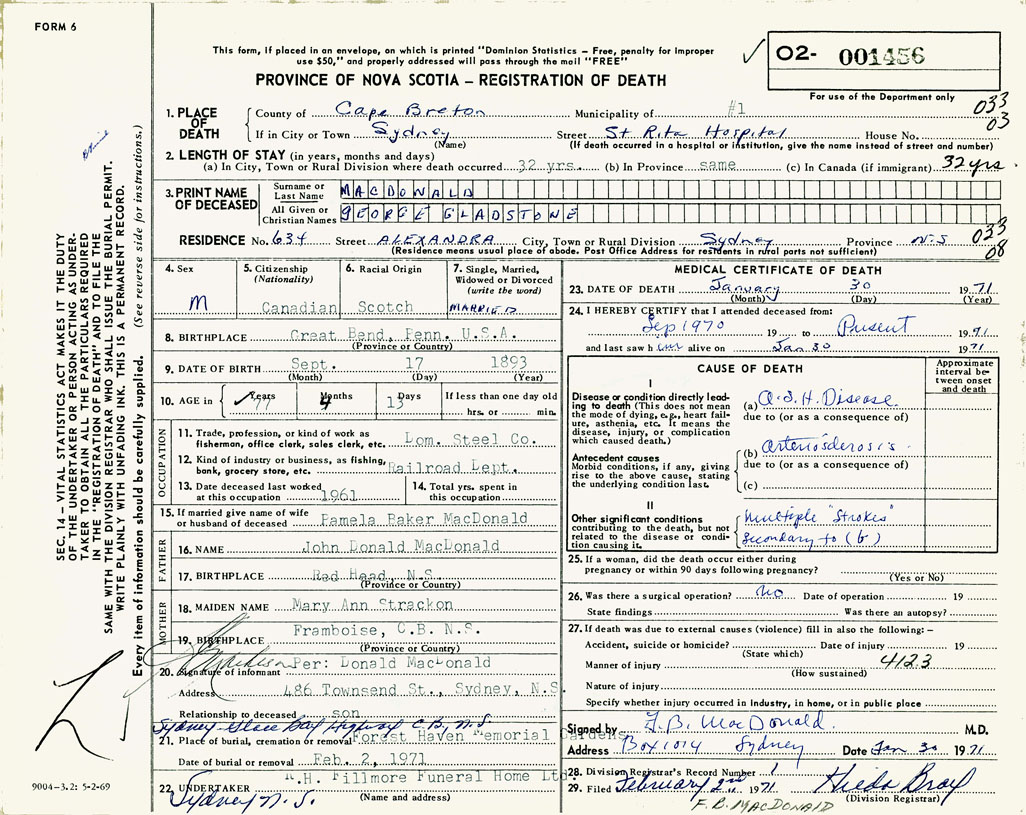 FORM 6
This form, if placed in an envelope, on which is printed "Dominion Statistics – Free, penalty for improper
use $50," and properly addressed will pass through the mail "FREE"
PROVINCE OF NOVA SCOTIA – REGISTRATION OF DEATH
✓ O2- 001456
For use of the Department only
033
03
1. PLACE OF DEATH
County of Cape Breton Municipality of #1
If in City or Town Sydney Street St Rita Hospital House No.
(Name) (If death occurred in a hospital or institution, give the name instead of street and number)
2. LENGTH OF STAY (in years, months and days)
(a) In City, Town or Rural Division where death occurred 32 yrs. (b) In Province same (c) In Canada (if immigrant) 32 yrs
3. PRINT NAME OF DECEASED
Surname or Last Name MACDONALD
All Given or Christian Names GEORGE GLADSTONE
RESIDENCE No. 634 Street ALEXANDRA City, Town or Rural Division Sydney Province N.S
033
08
(Residence means usual place of abode. Post Office Address for residents in rural parts not sufficient)
4. Sex
M
5. Citizenship
(Nationality)
Canadian
6. Racial Origin
Scotch
7. Single, Married,
Widowed or Divorced
(write the word)
MARRIED
8. BIRTHPLACE Great Bend, Penn. U.S.A.
(Province or Country)
9. DATE OF BIRTH Sept. 17 1893
(Month) (Day) (Year)
10. AGE in ✓ 77 Years 4 Months 13 Days
If less than one day old
hrs. or min.
OCCUPATION
11. Trade, profession, or kind of work as
fisherman, office clerk, sales clerk, etc. Dom. Steel Co.
12. Kind of industry or business, as fishing,
bank, grocery store, etc. Railroad Dept.
13. Date deceased last worked
at this occupation 1961
14. Total yrs. spent in
this occupation
15. If married give name of wife
or husband of deceased Pamela Baker MacDonald
FATHER
16. NAME John Donald MacDonald
17. BIRTHPLACE Red Head, N.S.
(Province or Country)
MOTHER
18. MAIDEN NAME Mary Ann Strackon
19. BIRTHPLACE Framboise, C.B. N.S.
(Province or Country)
Per: Donald MacDonald
20. Signature of informant
Address 486 Townsend St., Sydney, N.S.
Relationship to deceased son
Sydney-Glace Bay Highway C.B., N.S.
21. Place of burial, cremation or removal Forest Haven Memorial Gardens
Date of burial or removal Feb. 2, 1971
22. UNDERTAKER W.H. Fillmore Funeral Home Ltd.
Sydney N.S. (Name and address)
MEDICAL CERTIFICATE OF DEATH
23. DATE OF DEATH January 30 1971
(Month) (Day) (Year)
24. I HEREBY CERTIFY that I attended deceased from:
Sep 1970 19 to Present 1971
and last saw him alive on Jan 30 1971
CAUSE OF DEATH
Approximate
interval be-
tween onset
and death
I
Disease or condition directly lead-
ing to death (This does not
mean the mode of dying, e.g., heart fail-
ure, asthenia, etc. It means the
disease, injury, or complication
which caused death.)
(a) A.S.H. Disease.
due to (or as a consequence of)
Antecedent causes
Morbid conditions, if any, giving
rise to the above cause, stating
the underlying condition last.
(b) Arteriosclerosis
due to (or as a consequence of)
(c)
II
Other significant conditions
contributing to the death, but not
related to the disease or condi-
tion causing it.
Multiple "Strokes"
Secondary to (b)
25. If a woman, did the death occur either during
pregnancy or within 90 days following pregnancy?
(Yes or No)
26. Was there a surgical operation? No Date of operation 19
State findings Was there an autopsy?
27. If death was due to external causes (violence) fill in also the following: –
Accident, suicide or homicide? Date of injury 19
(State which)
Manner of injury 4123
(How sustained)
Nature of injury
Specify whether injury occurred in Industry, in home, or in public place
Signed by F.B. MacDonald M.D.
Address Box 1014 Sydney Date Jan 30 1971
28. Division Registrar's Record Number 1
29. Filed February 2nd 1971 Hilda Bray
(Division Registrar)
F.B. MACDONALD
SEC. 14 – VITAL STATISTICS ACT MAKES IT THE DUTY
OF THE UNDERTAKER OR PERSON ACTING AS UNDER-
TAKER TO OBTAIN ALL THE PARTICULARS REQUIRED
IN THE "REGISTRATION OF DEATH" AND TO FILE THE
SAME WITH THE DIVISION REGISTRAR WHO SHALL ISSUE THE BURIAL PERMIT.
WRITE PLAINLY WITH UNFADING INK. THIS IS A PERMANENT RECORD.
Every item of information should be carefully supplied. (See reverse side for instructions.)
9004-3.2: 5-2-69